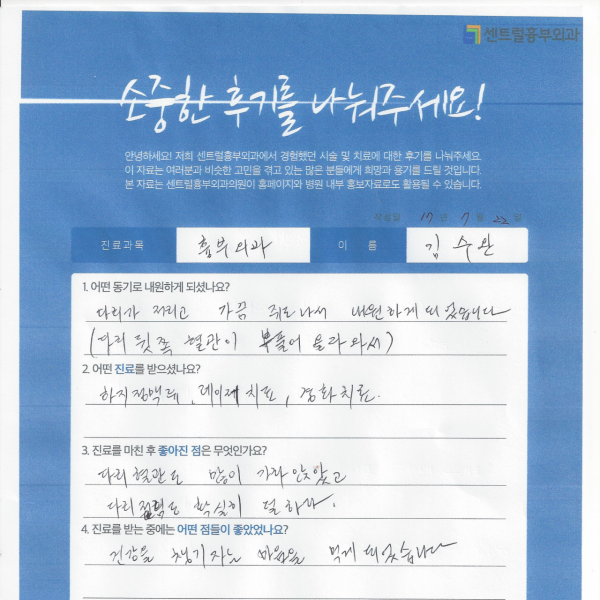 센트럴흉부외과
소중한 후기를 나눠주세요!
안녕하세요! 저희 센트럴흉부외과에서 경험했던 시술 및 치료에 대한 후기를 나눠주세요
이 자료는 여러분과 비슷한 고민을 겪고 있는 많은 분들에게 희망과 용기를 드릴 것입니다.
본 자료는 센트럴흉부외과의원이 홈페이지와 병원 내부 홍보자료로도 활용될 수 있습니다.
작성일 17 년 7 월 22 일
진료과목 흉부외과 이 름 김수완
1. 어떤 동기로 내원하게 되셨나요?
다리가 저리고 가끔 쥐도 나서 내원하게 되었습니다
(다리 뒷쪽 혈관이 부풀어 올라와서)
2. 어떤 진료를 받으셨나요?
하지정맥류, 레이져치료, 경화치료.
3. 진료를 마친 후 좋아진 점은 무엇인가요?
다리혈관도 많이 가라앉았고
다리 도 확실히 덜하다.
4. 진료를 받는 중에는 어떤 점들이 좋았었나요?
건강을 챙기자는 마음을 먹게 되었습니다